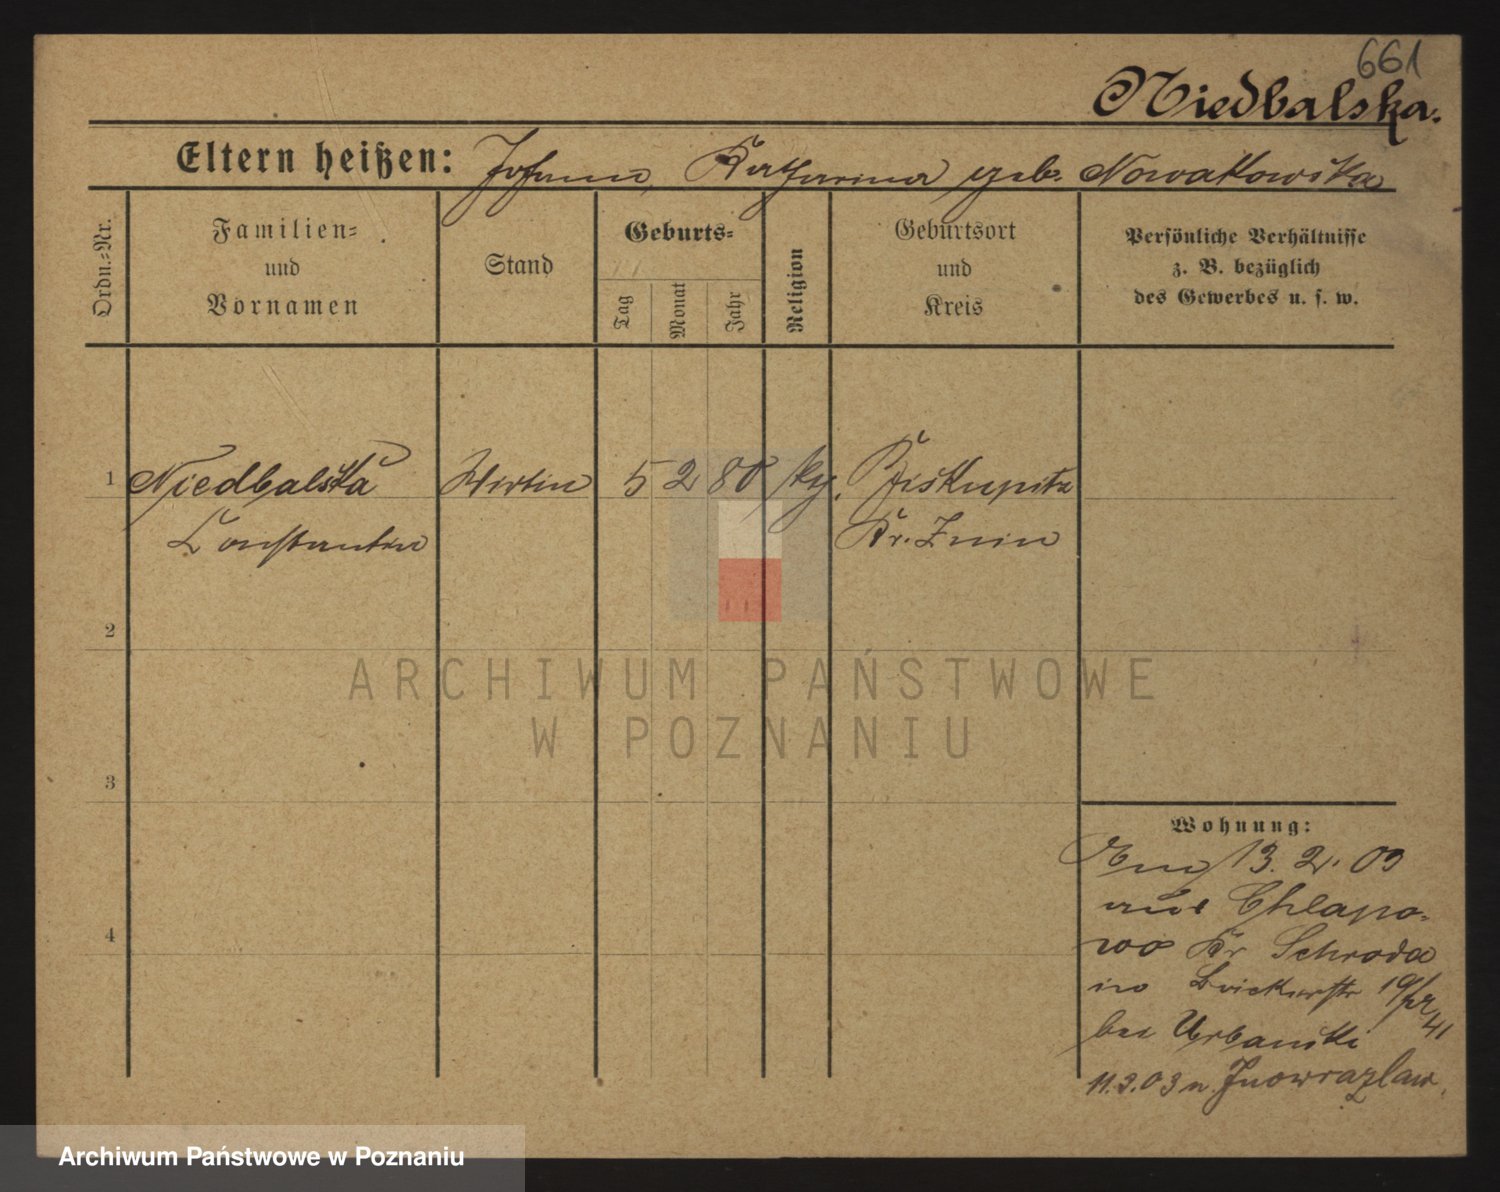 661
Niedbalska.
Eltern heißen: Johann, Katharina geb. Nowakowska
Ordn.-Nr.
Familien-
und
Vornamen
Stand
Geburts-
Tag
Monat
Jahr
Religion
Geburtsort
und
Kreis
Persönliche Verhältnisse
z. B. bezüglich
des Gewerbes u. s. w.
1 Niedbalska Wirtin 5 2 80 Biskupitz
Constantin Kr. Znin
2
3
4
Wohnung:
13. 2. 03
aus Chlapo-
wo Kr Schroda
in
bei Urbanski
11.3.03 n. Inowrazlaw.
ARCHIWUM PAŃSTWOWE
W POZNANIU
Archiwum Państwowe w Poznaniu